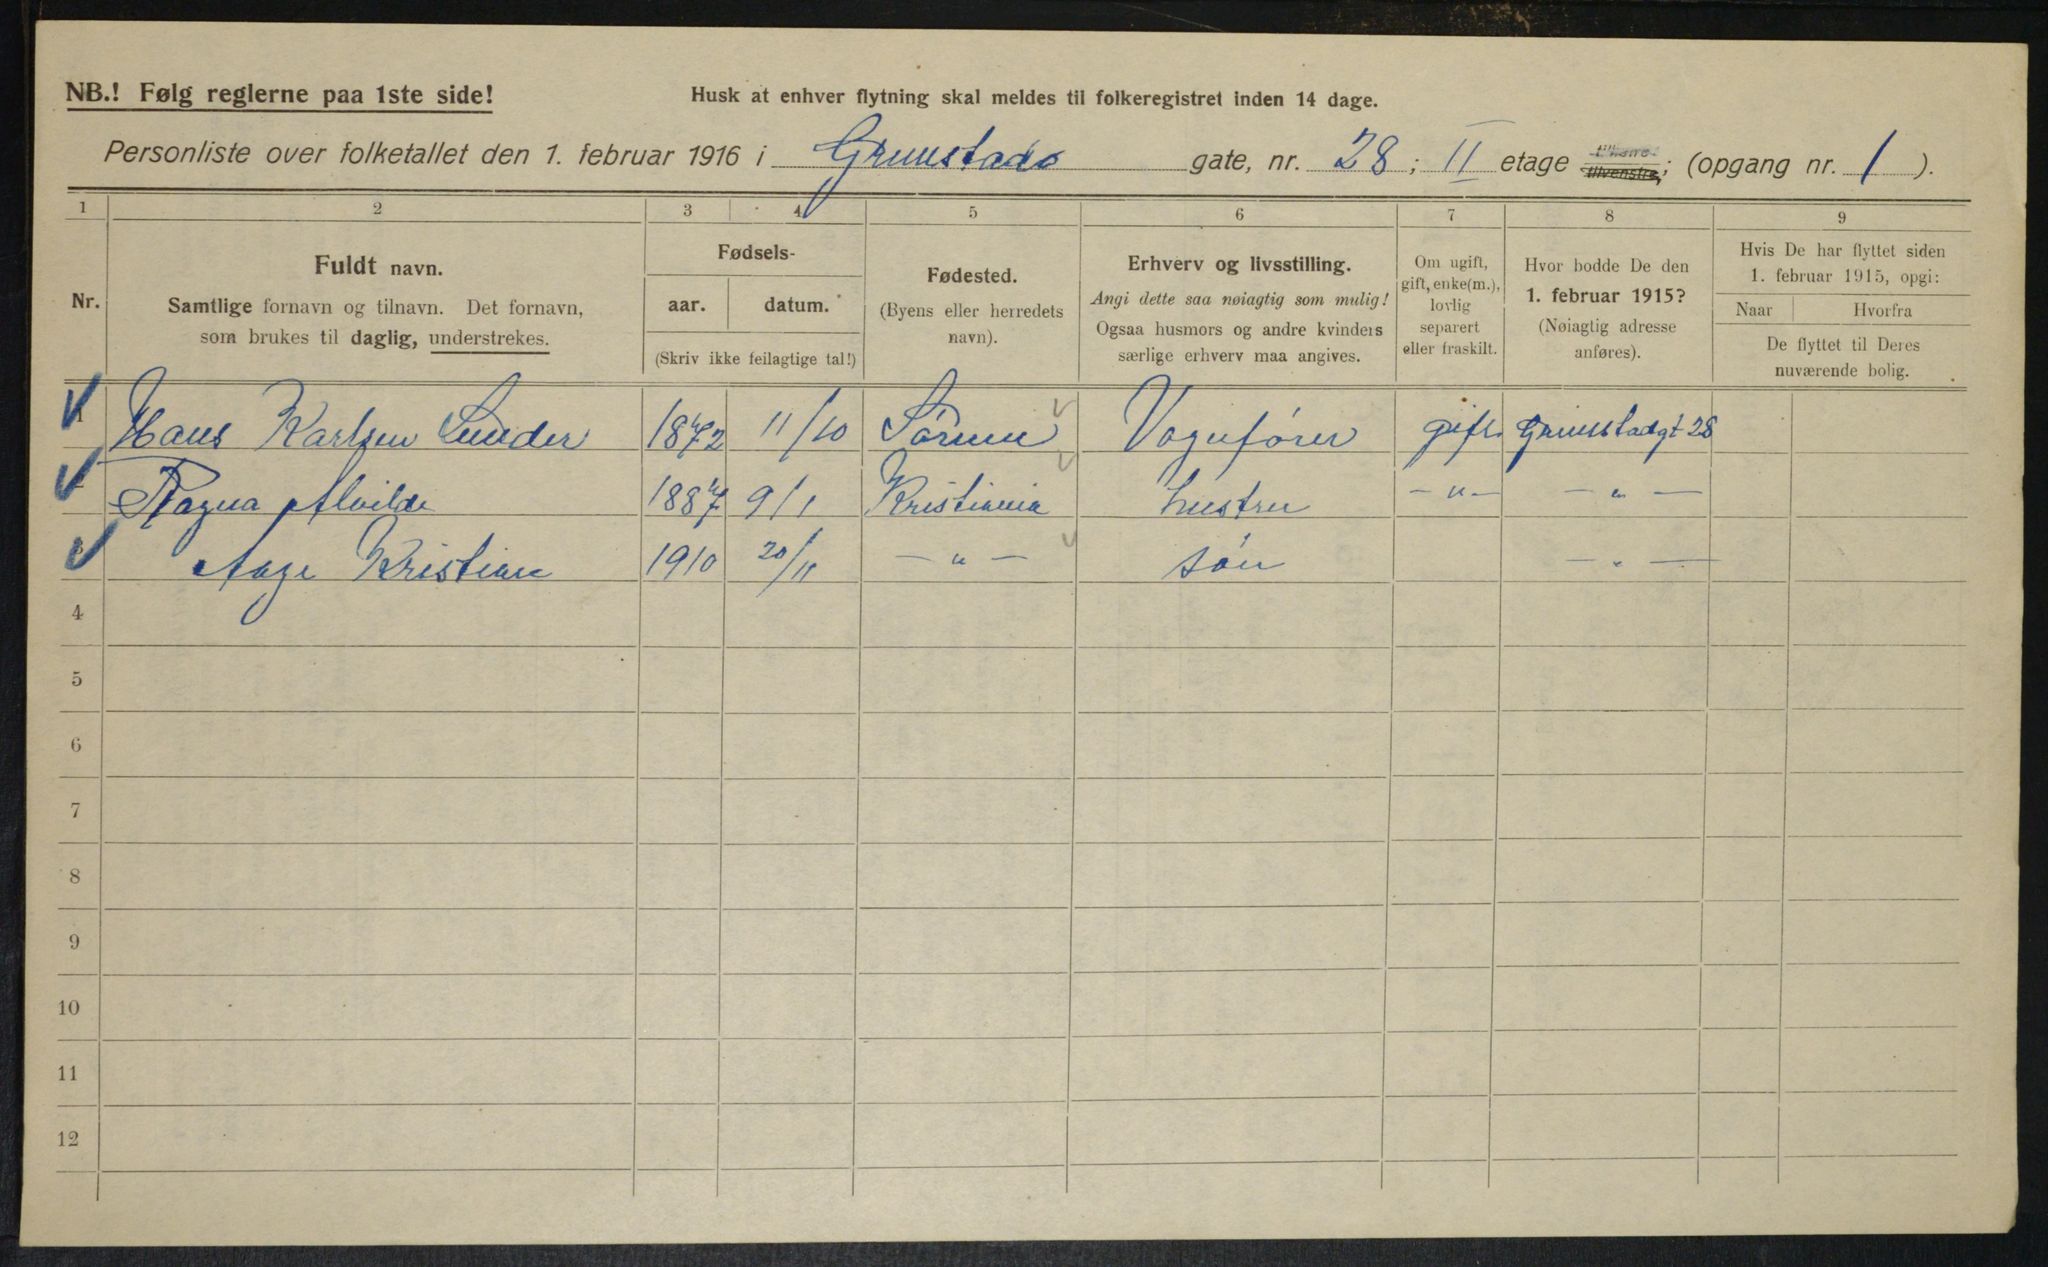 NB.! Følg reglerne paa 1ste side!
Husk at enhver flytning skal meldes til folkeregistret inden 14 dage.
Personliste over folketallet den 1. februar 1916 i Grimstads gate, nr. 28; II etage tilvenstre; (opgang nr. 1).
1 2 3 4 5 6 7 8 9
Nr.
Fuldt navn.
Samtlige fornavn og tilnavn. Det fornavn,
som brukes til daglig, understrekes.
Fødsels-
aar. datum.
(Skriv ikke feilagtige tal!)
Fødested.
(Byens eller herredets
navn).
Erhverv og livsstilling.
Angi dette saa nøiagtig som mulig!
Ogsaa husmors og andre kvinders
særlige erhverv maa angives.
Om ugift,
gift, enke(m.),
lovlig
separert
eller fraskilt.
Hvor bodde De den
1. februar 1915?
(Nøiagtig adresse
anføres).
Hvis De har flyttet siden
1. februar 1915, opgi:
Naar Hvorfra
De flyttet til Deres
nuværende bolig.
1 Hans Karlsen Sunder 1872 11/10 Sörum Vognfører gift Grimstadgt 28
Ragna Alvilde 1887 9/1 Kristiania hustru -"- -"-
Aage Kristian 1910 20/11 -"- søn -"-
4
5
6
7
8
9
10
11
12